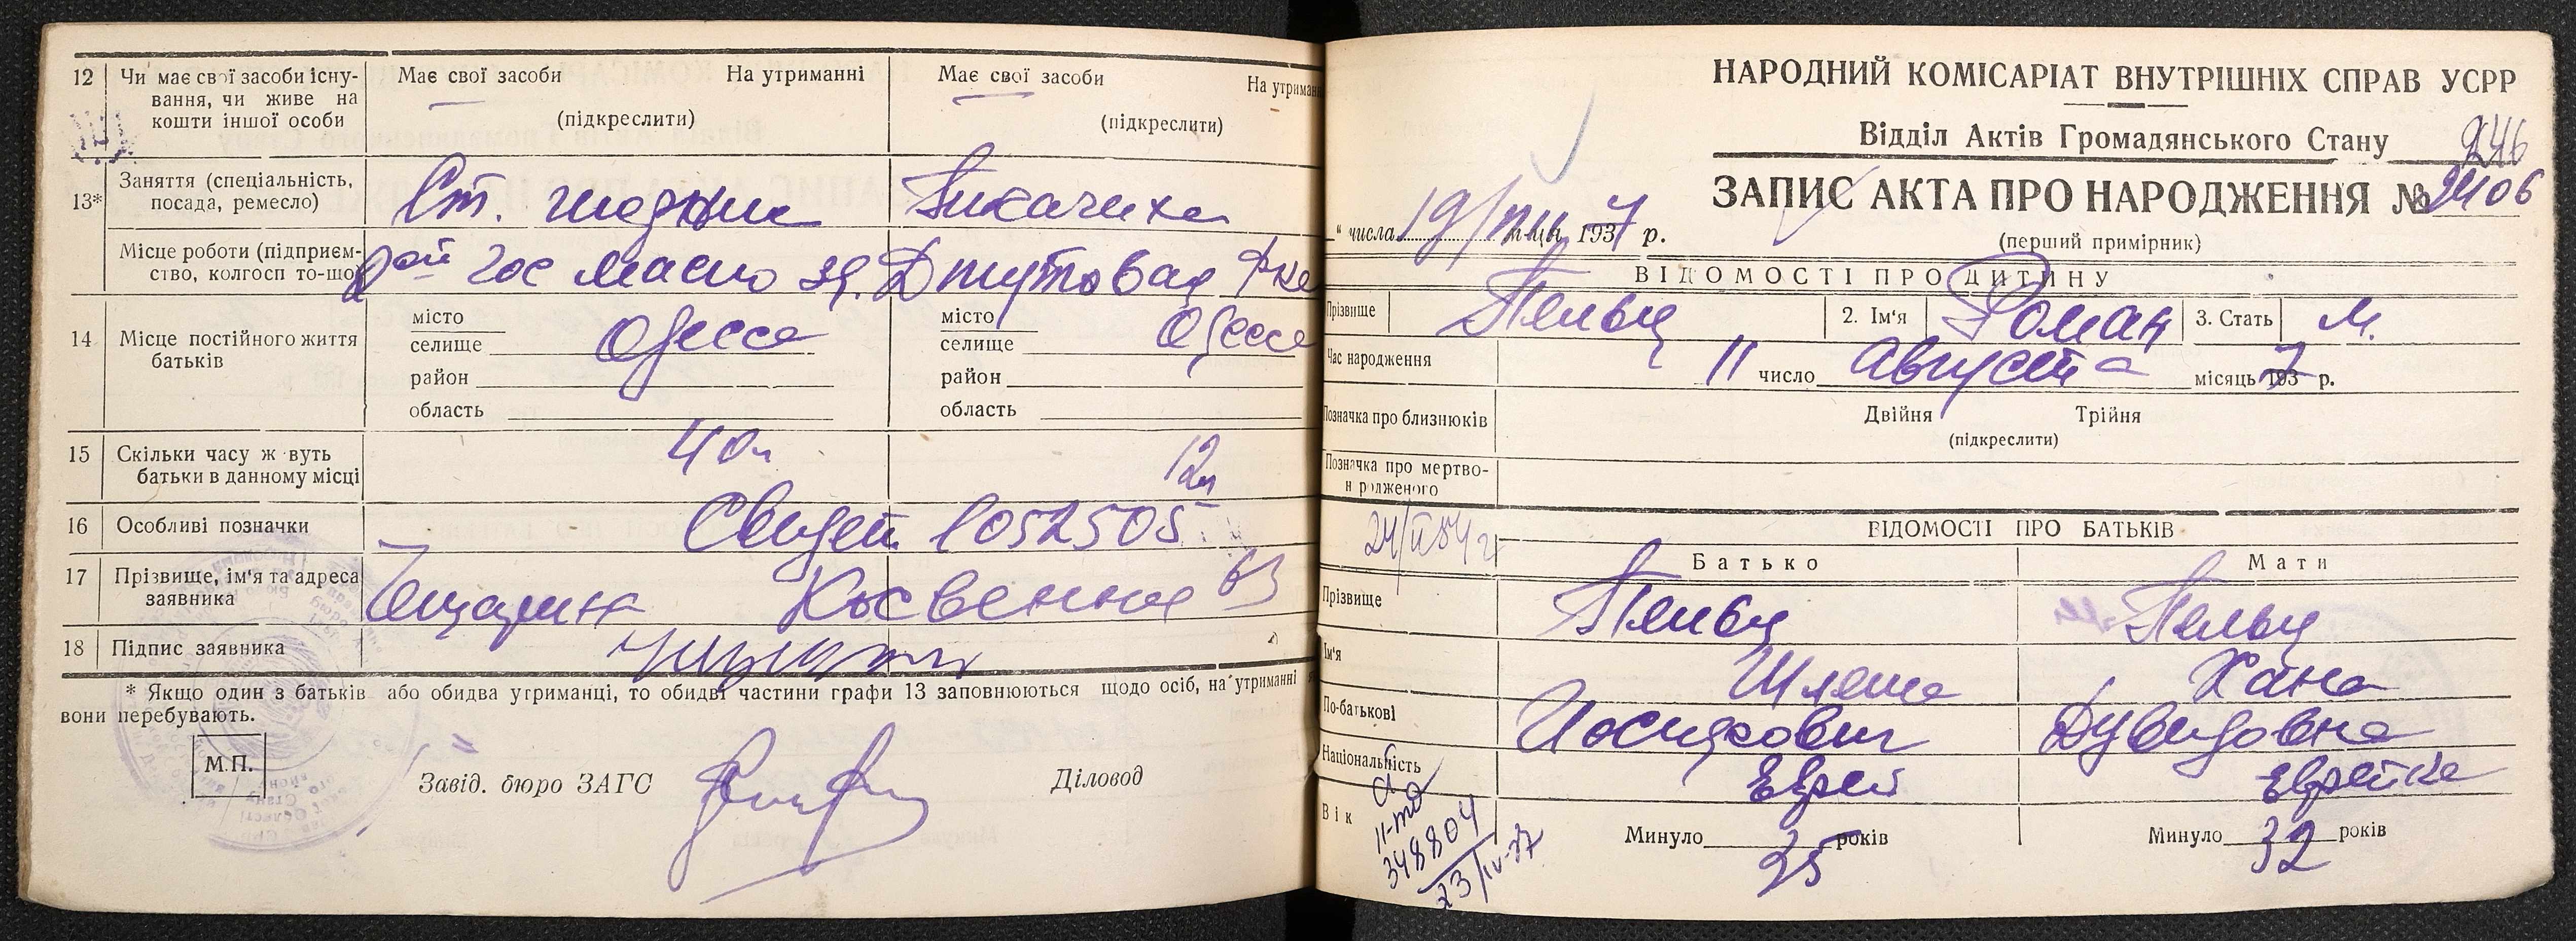 12 Чи має свої засоби існування, чи живе на кошти іншої особи
Має свої засоби На утриманні
(підкреслити)
Має свої засоби На утриман
(підкреслити)
13* Заняття (спеціальність, посада, ремесло)
Ст. Ткачиха
Місце роботи (підприємство, колгосп то-що)
гос Джутовая
14 Місце постійного життя батьків
місто
селище Одесса
район
область
місто
селище Одесса
район
область
15 Скільки часу ж вуть батьки в данному місці
12л
16 Особливі позначки
Свидет. 1052505
17 Прізвище, ім'я та адреса заявника
Косвенная 63
18 Підпис заявника
* Якщо один з батьків або обидва утриманці, то обидві частини графи 13 заповнюються щодо осіб, на утриманні
вони перебувають.
М.П.
Завід. бюро ЗАГС Діловод
НАРОДНИЙ КОМІСАРІАТ ВНУТРІШНІХ СПРАВ УСРР
Відділ Актів Громадянського Стану
246
ЗАПИС АКТА ПРО НАРОДЖЕННЯ № 2406
" числа 19/VIII м-ця 1937 р.
(перший примірник)
ВІДОМОСТІ ПРО ДИТИНУ
Прізвище Пельц 2. Ім'я Роман 3. Стать М.
Час народження 11 число Августа місяць 1937 р.
Позначка про близнюків Двійня Трійня
(підкреслити)
Позначка про мертвон родженого
ВІДОМОСТІ ПРО БАТЬКІВ
Батько Мати
Прізвище Пельц Пельц
Ім'я Шлема Хана
По-батькові Иосифович Дувидовна
Національність Еврей Еврейка
Вік Минуло 25 років Минуло 32 років
348804